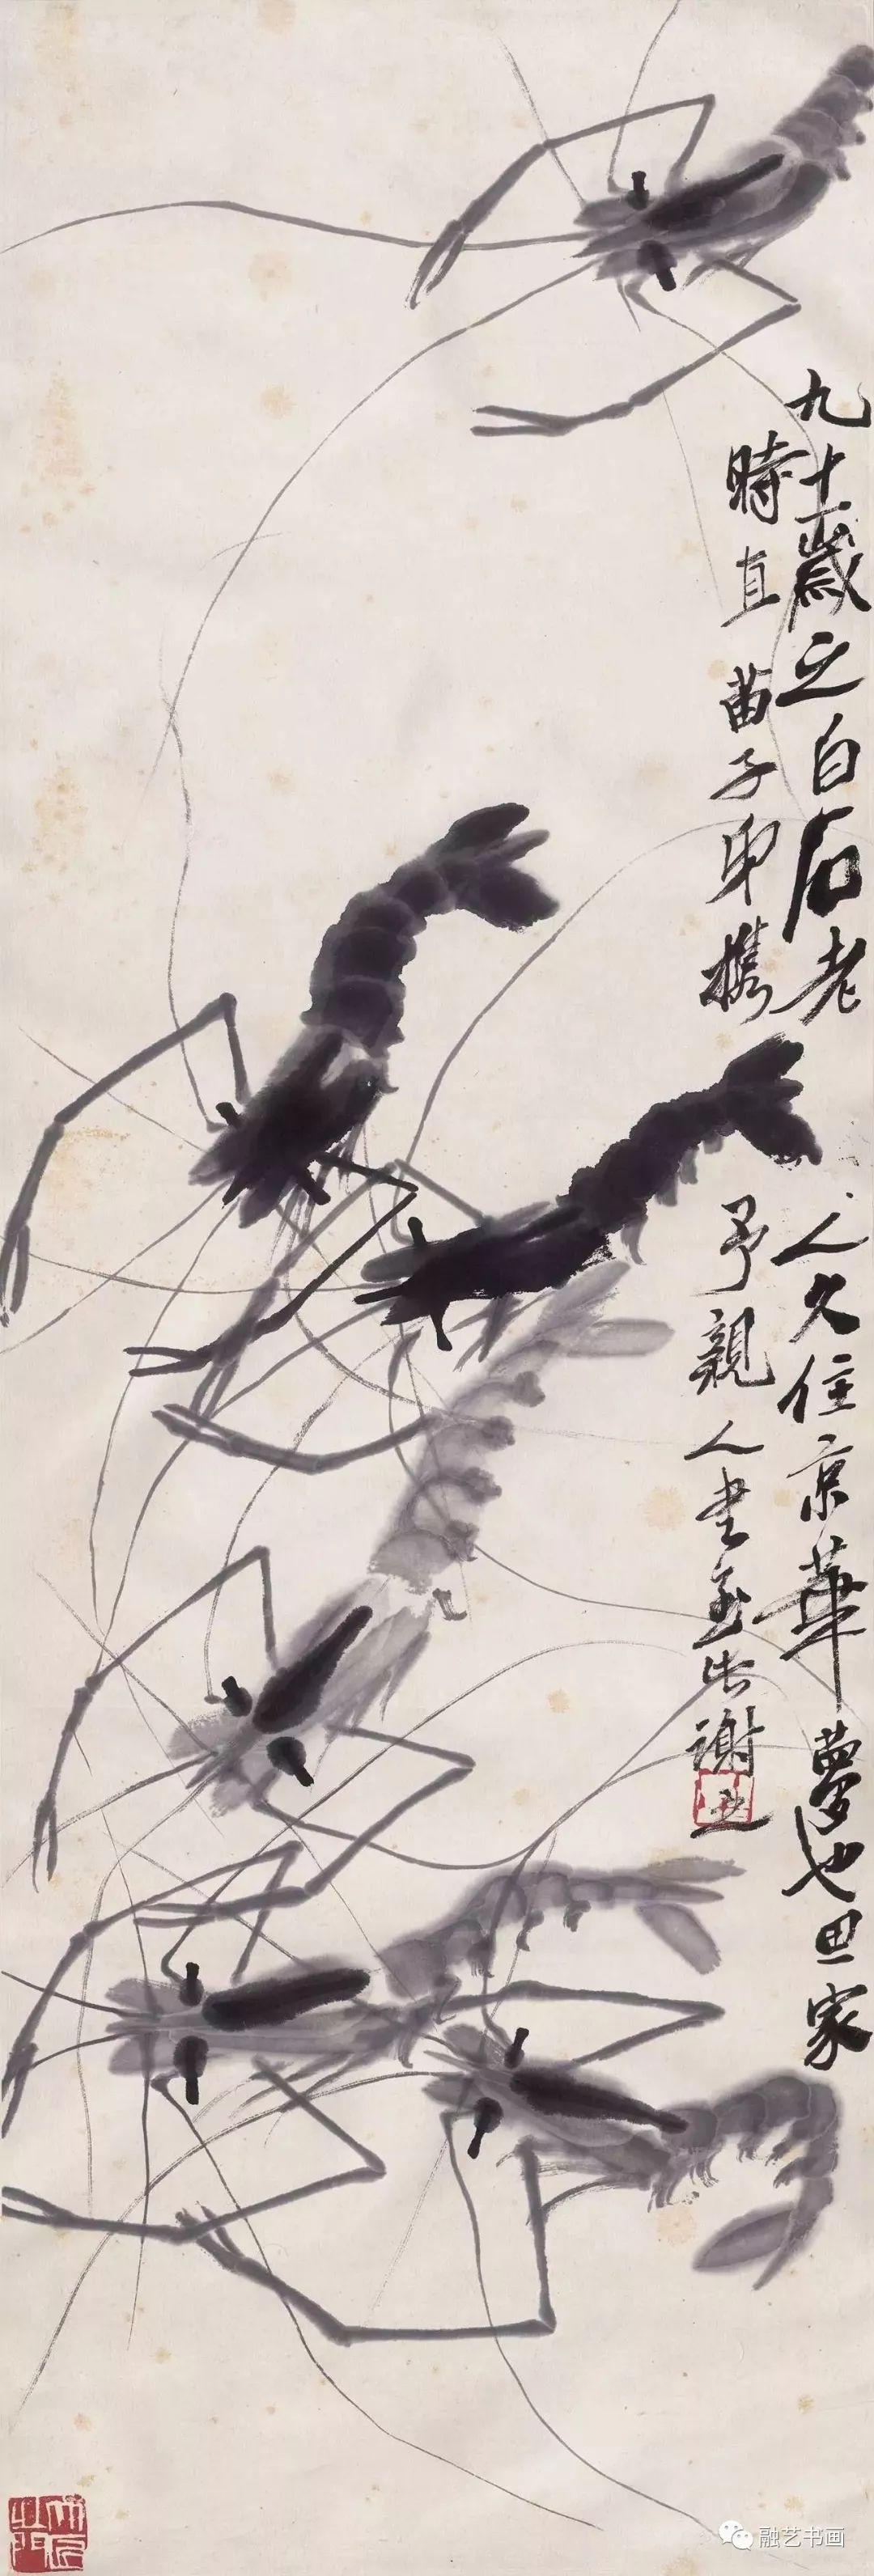 九十一歲之白石老人久住京華夢也思家
時直苗子弟攜予親人書至出謝
融艺书画